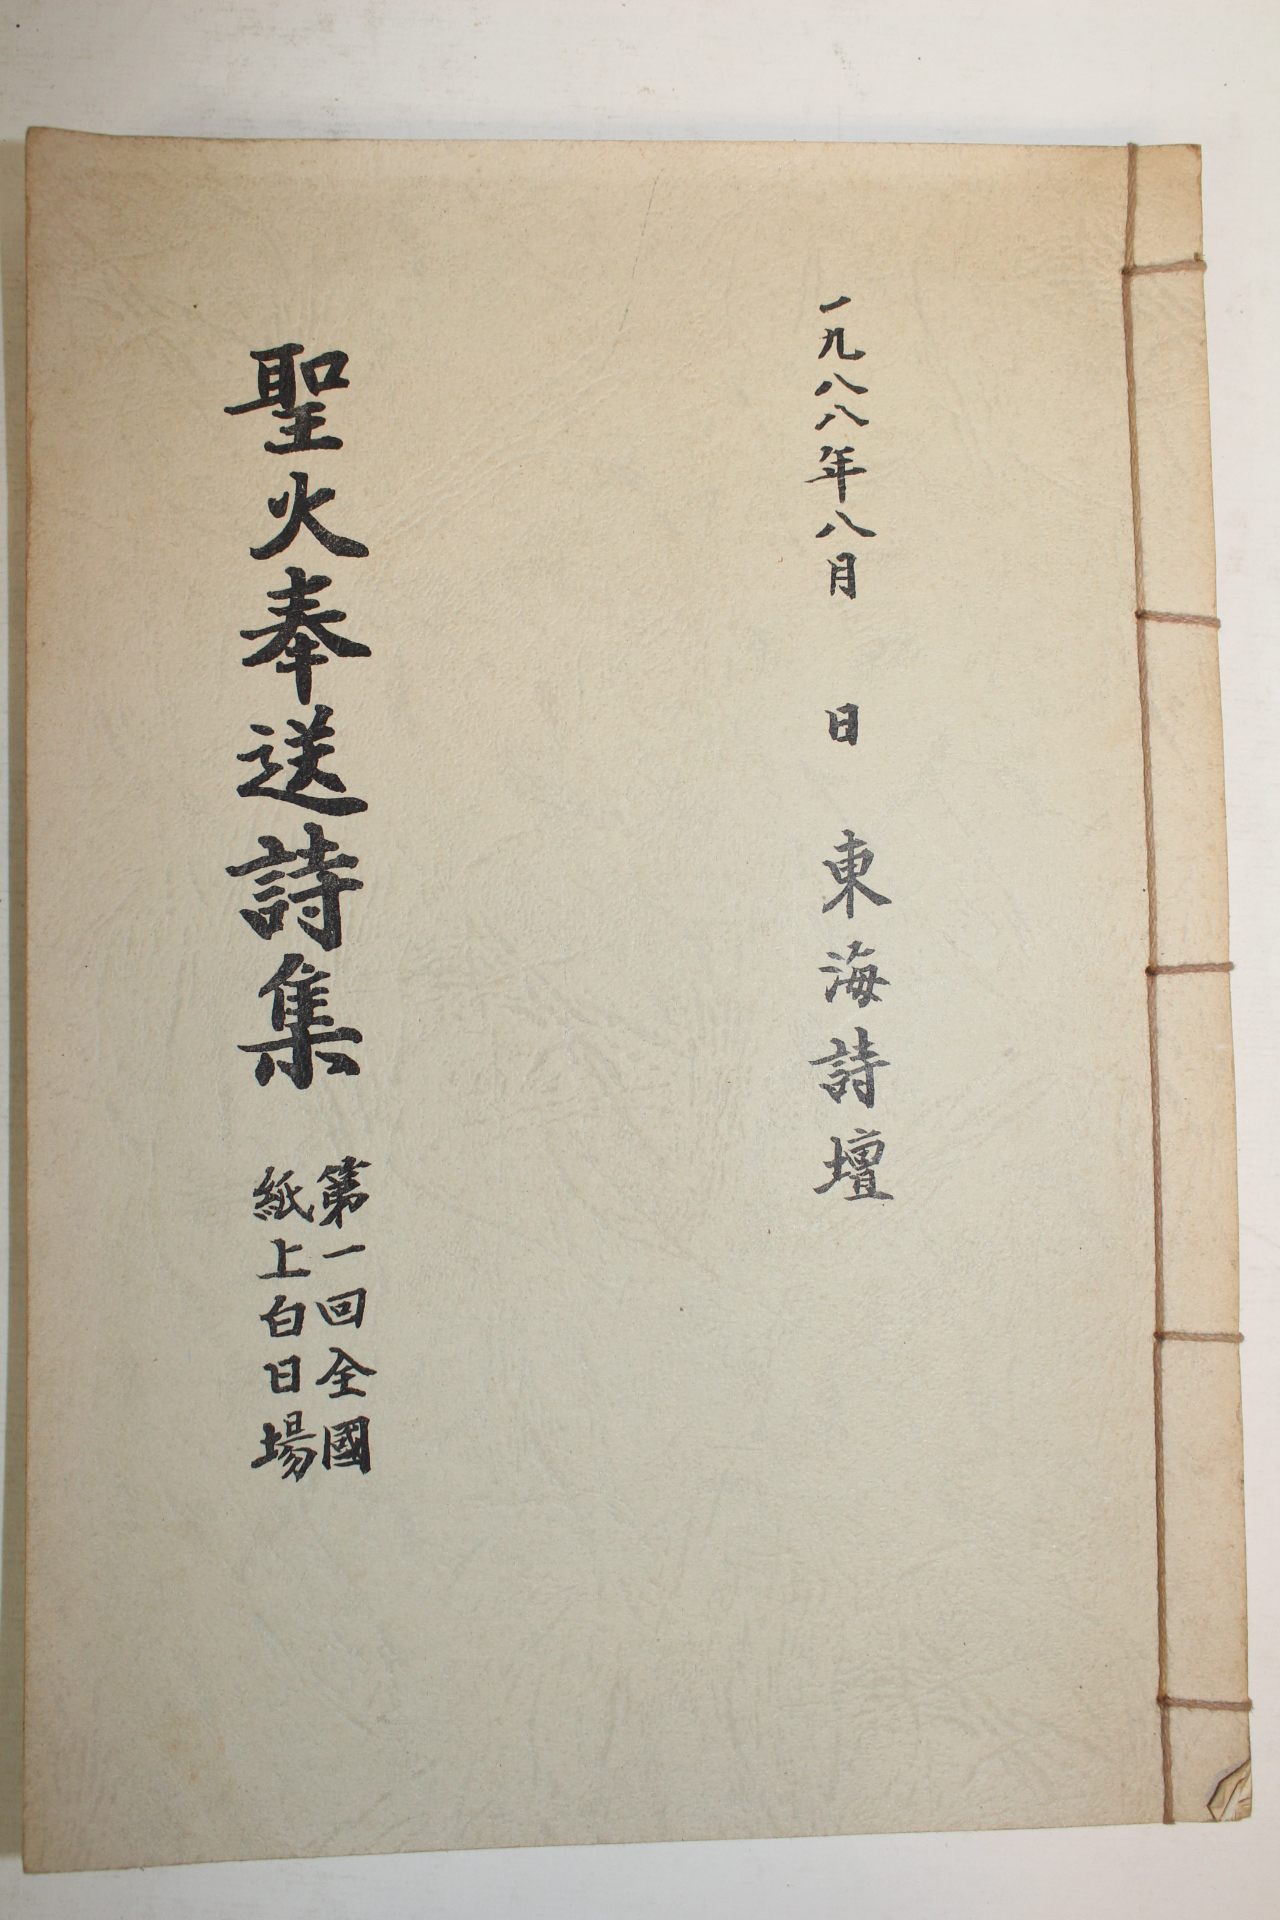 一九八八年八月 日 東海詩壇
聖火奉送詩集
第一回全國
紙上白日場